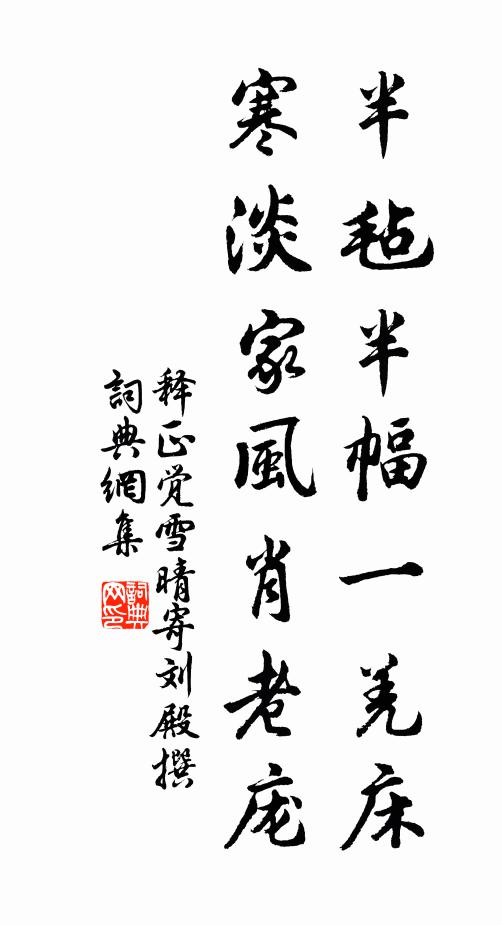 半毡半幅一羌床
寒淡家風肖老庞
释正觉雪晴寄刘殿撰
詞典網集
詞典网印